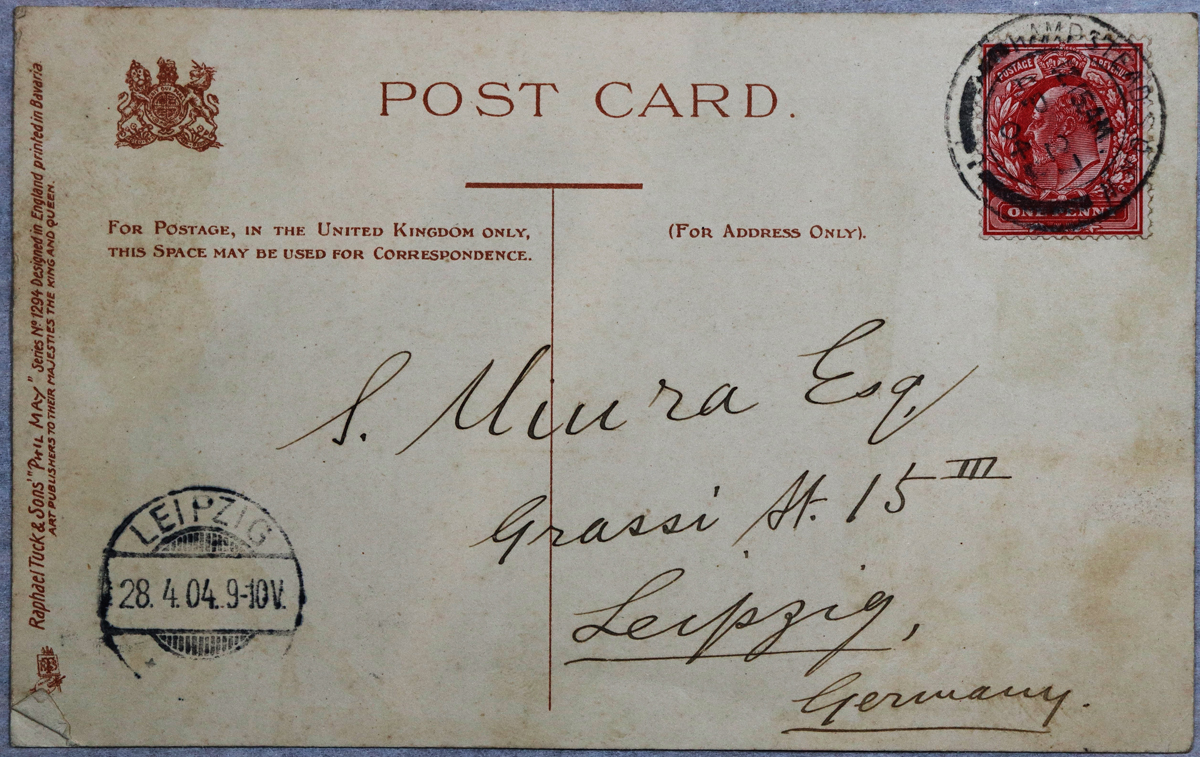 POST CARD.
FOR POSTAGE, IN THE UNITED KINGDOM ONLY,
THIS SPACE MAY BE USED FOR CORRESPONDENCE.
(FOR ADDRESS ONLY).
POSTAGE
ONE PENNY
S. Miura Esq.
Grassi St. 15 III
Leipzig,
Germany.
LEIPZIG
28. 4. 04. 9-10V.
Raphael Tuck & Sons' "PHIL MAY" Series No 1294 Designed in England printed in Bavaria
ART PUBLISHERS TO THEIR MAJESTIES THE KING AND QUEEN.